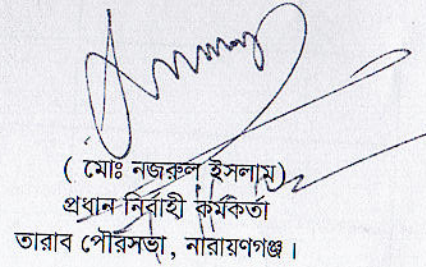 ( মোঃ নজরুল ইসলাম)
প্রধান নির্বাহী কর্মকর্তা
তারাব পৌরসভা, নারায়ণগঞ্জ।